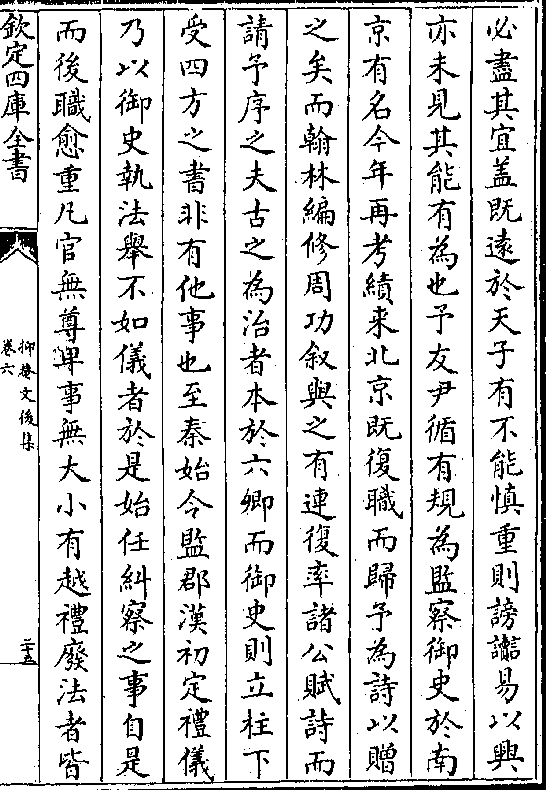 必盡其宜蓋既遠於天子有不能慎重則謗讟易以興
亦未見其能有為也予友尹循有規為監察御史於南
京有名今年再考績来北京既復職而歸予為詩以贈
之矣而翰林編修周功叙與之有連復率諸公賦詩而
請予序之夫古之為治者本於六卿而御史則立柱下
受四方之書非有他事也至秦始令監郡漢初定禮儀
乃以御史執法舉不如儀者於是始任糾察之事自是
而後職愈重凡官無尊卑事無大小有越禮廢法者皆
欽定四庫全書
抑菴文後集
卷六
二十五